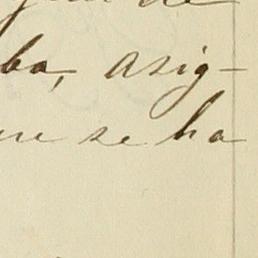 de
ba, asig-
se ha